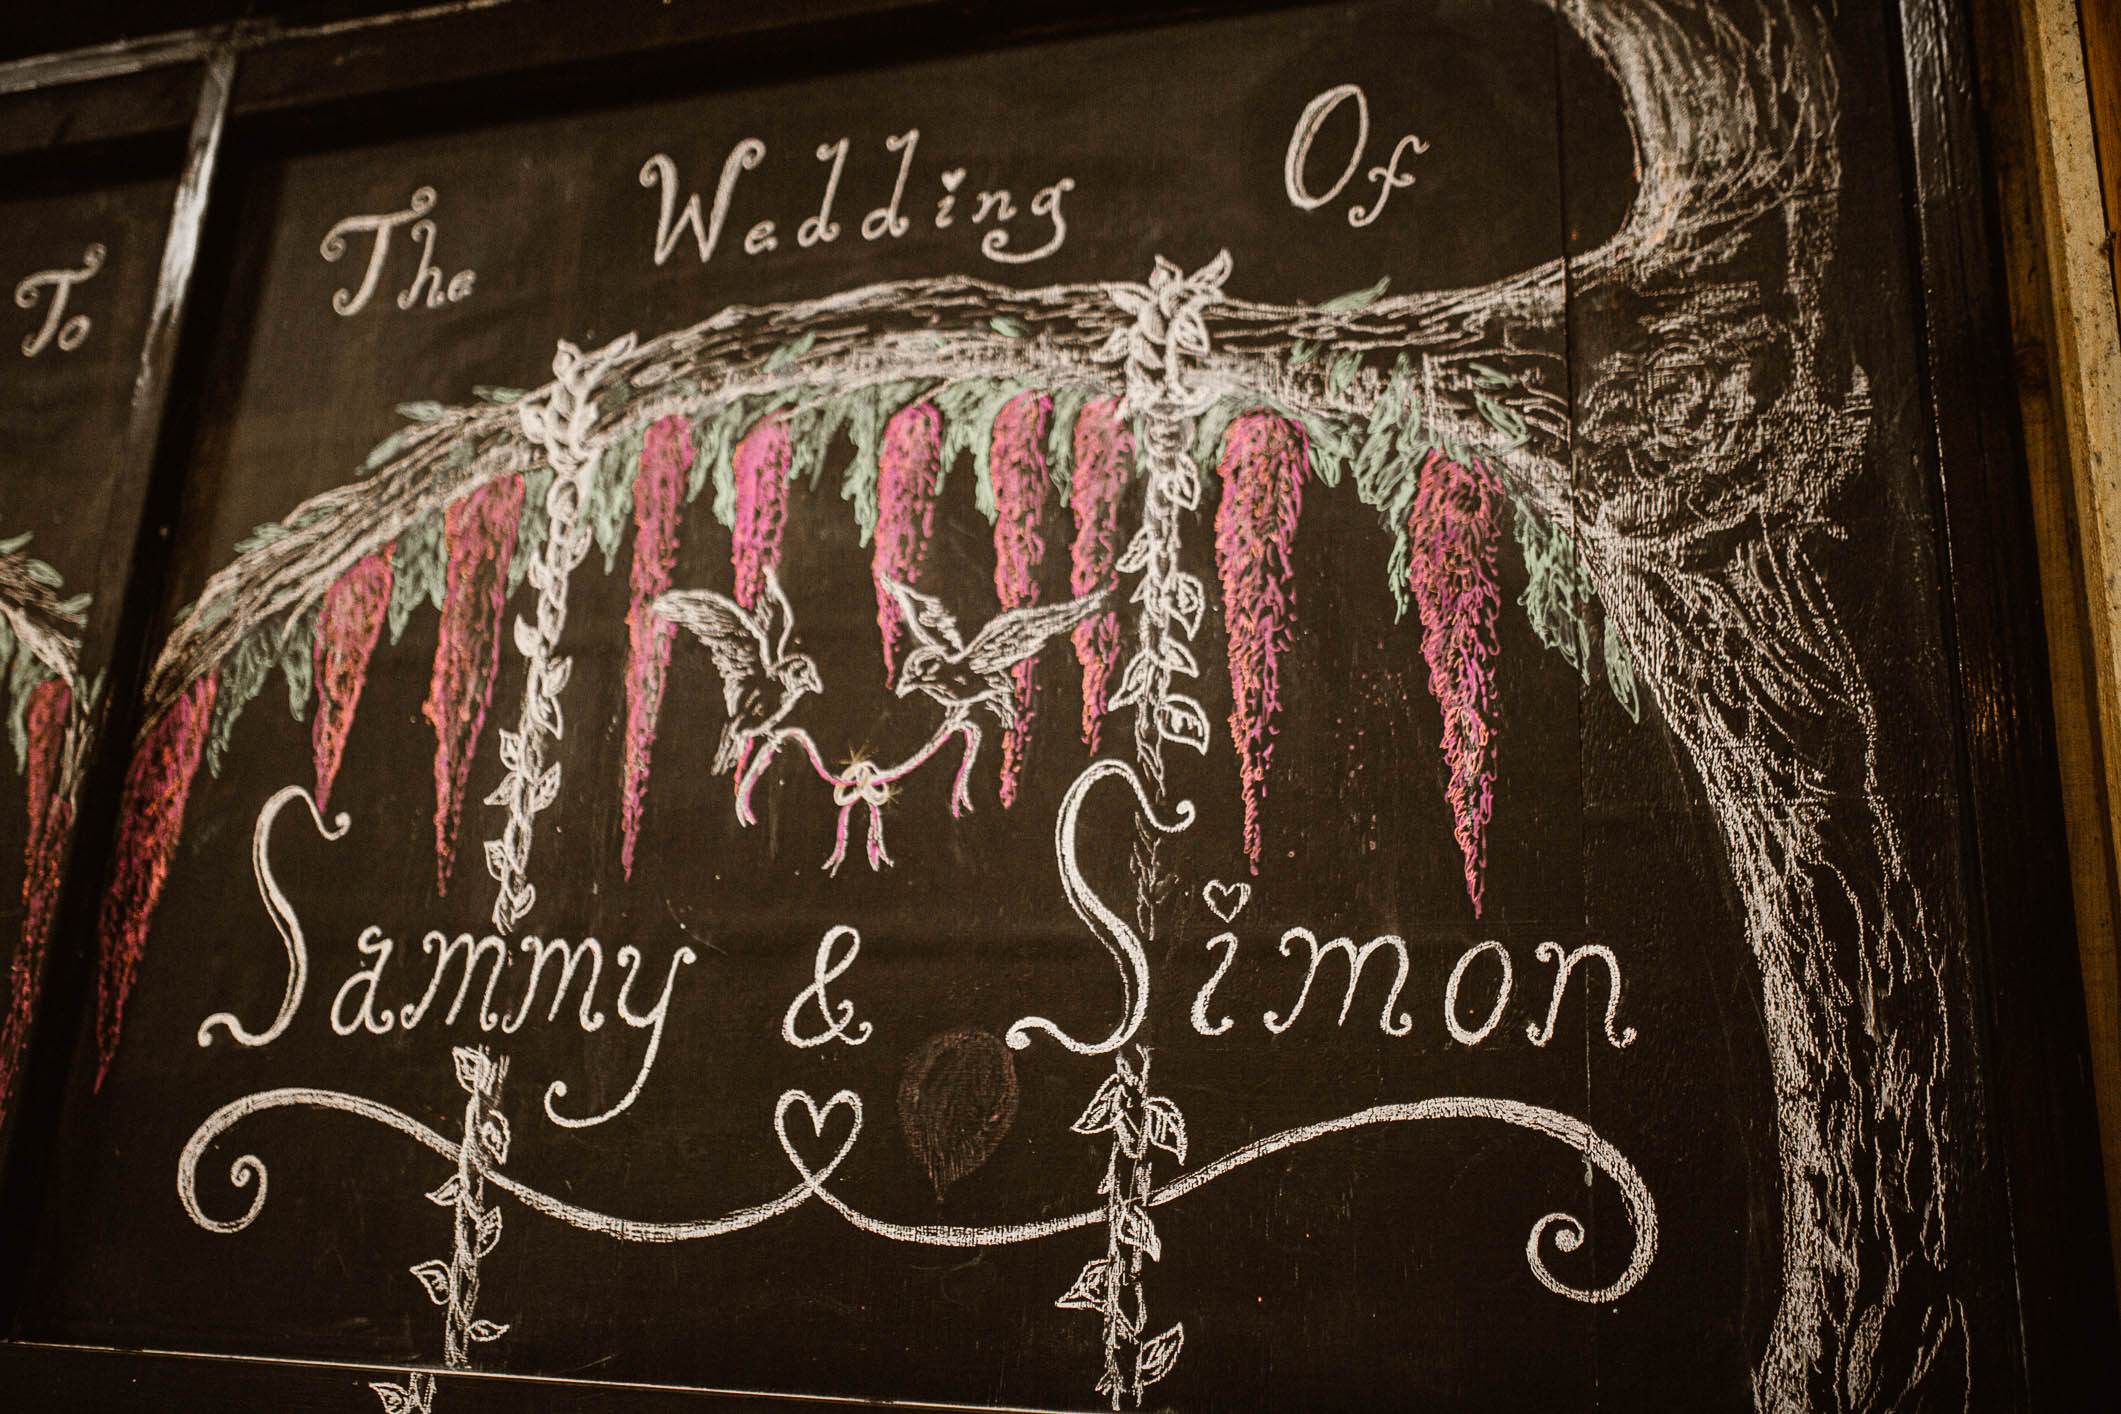 To
The Wedding Of
Sammy & Simon